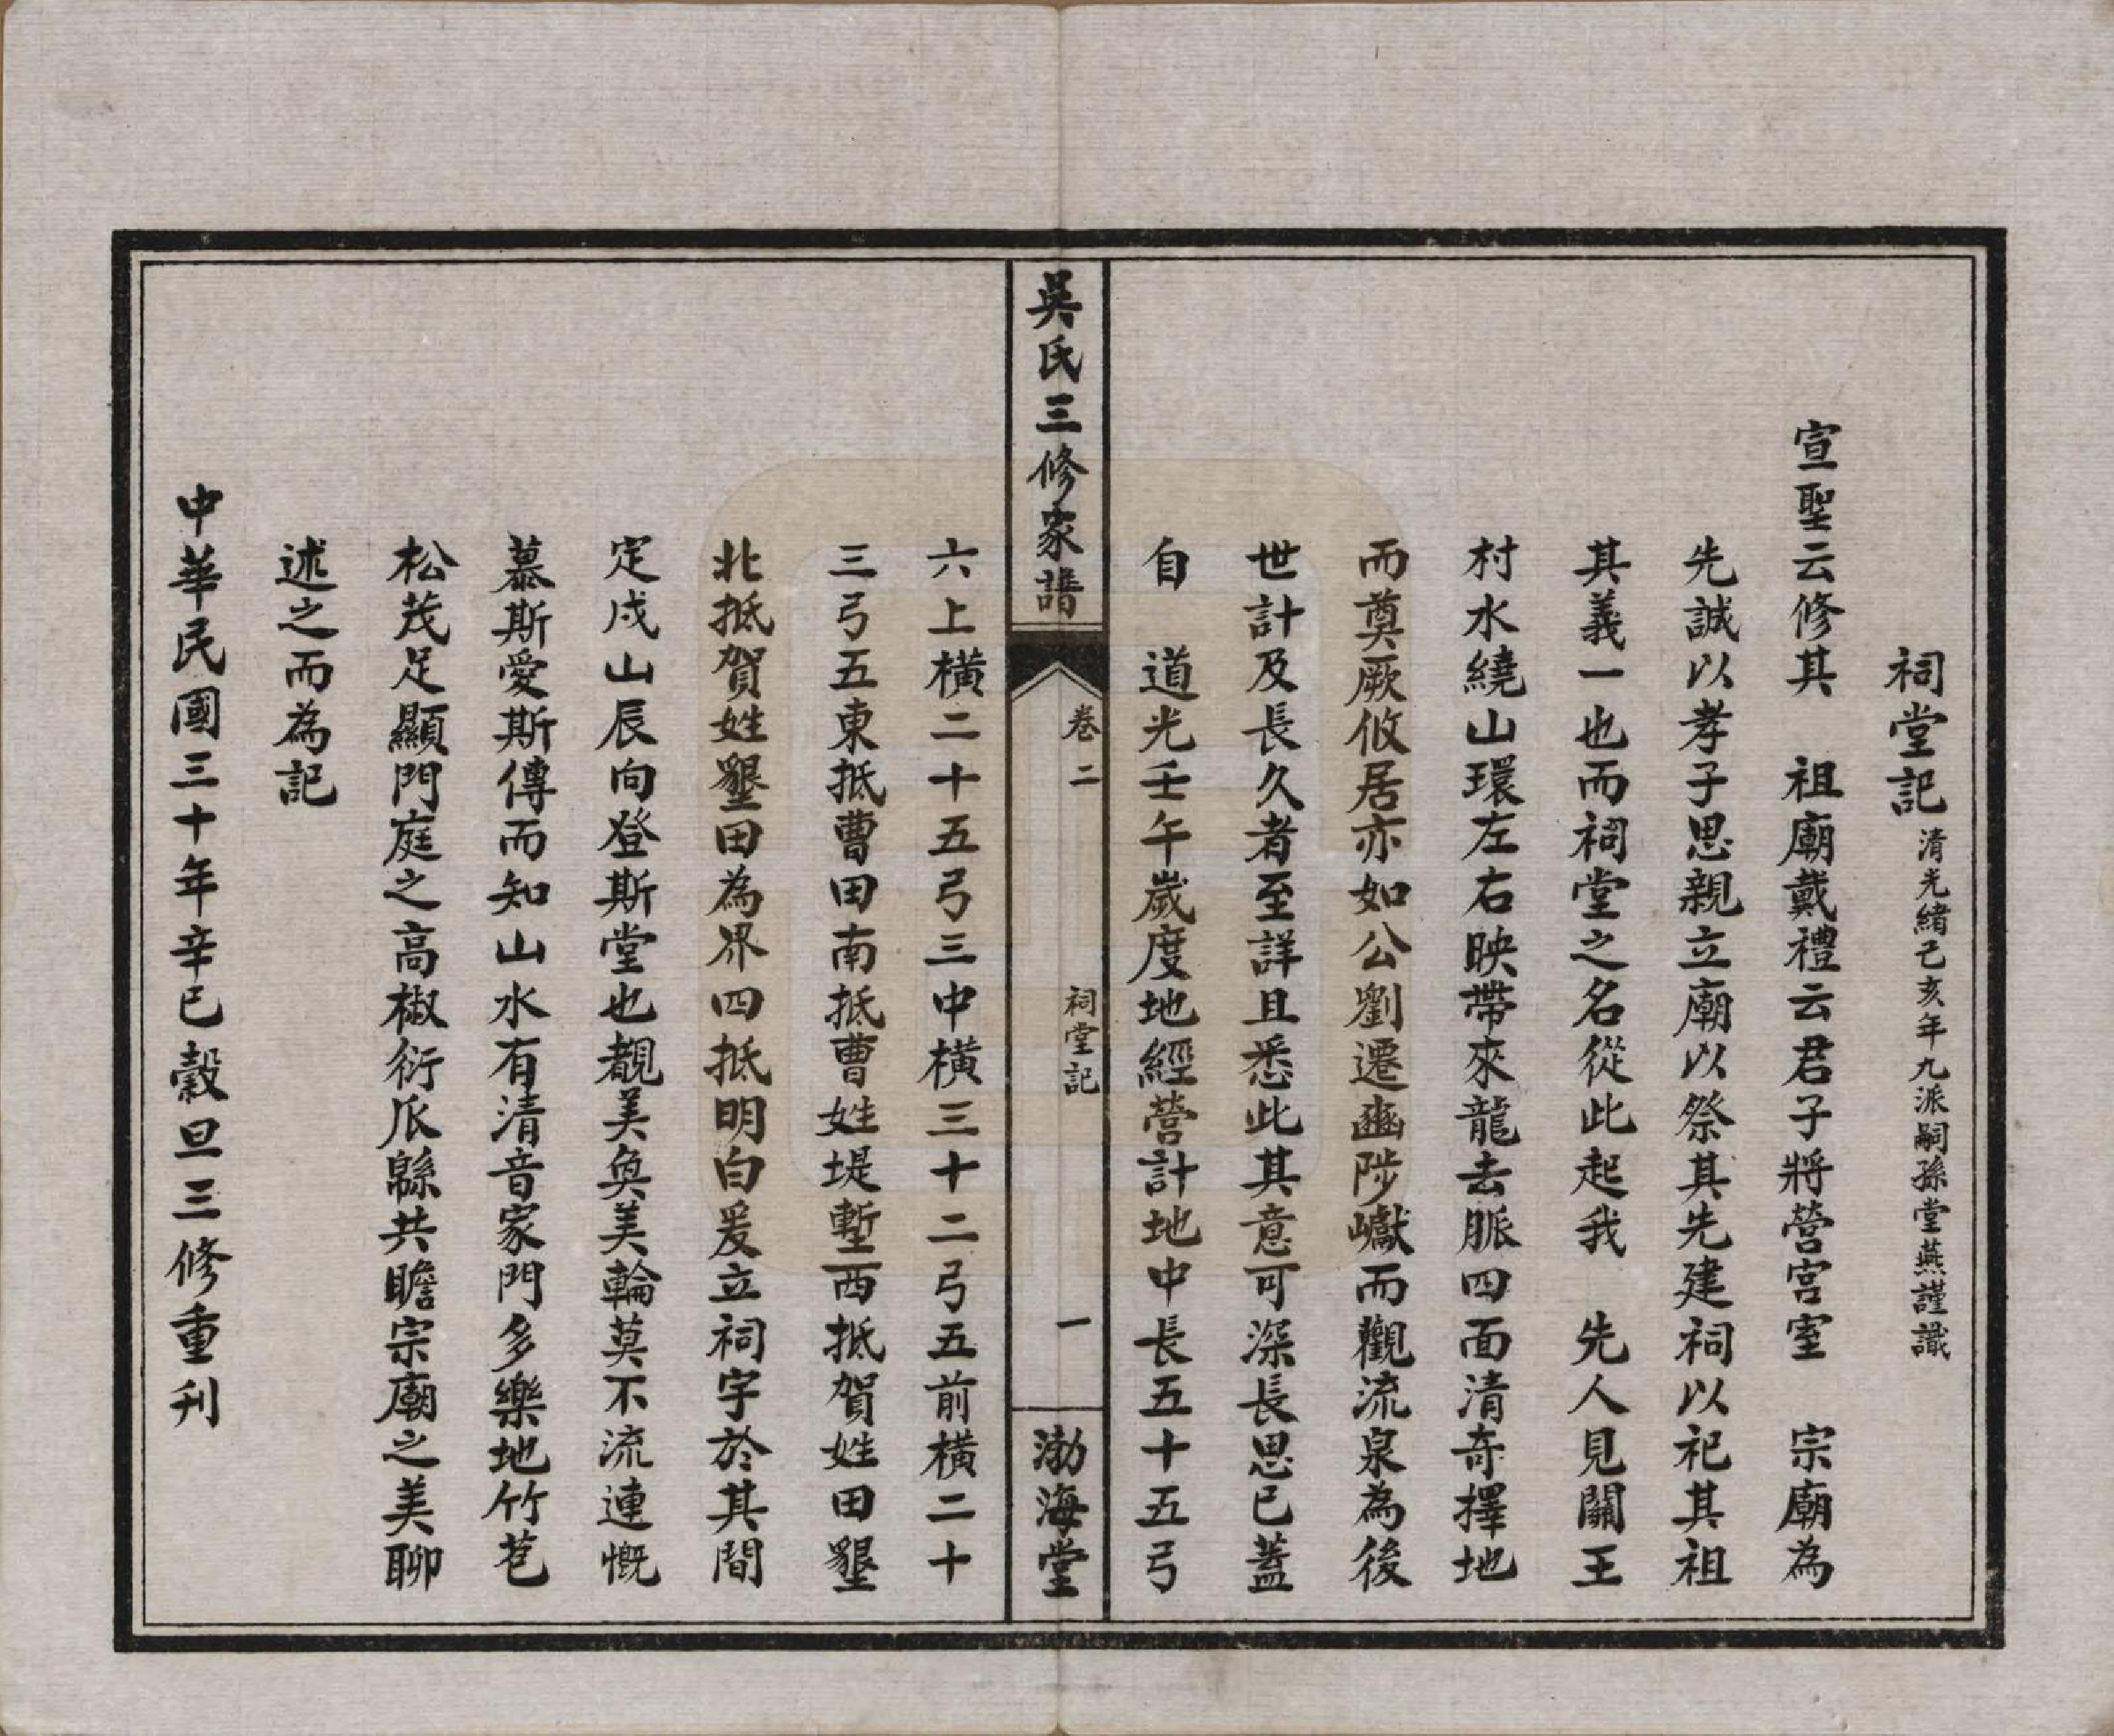 祠堂記 清光緒己亥年九派嗣孫堂燕謹識
宣聖云修其　祖廟戴禮云君子將營宮室　宗廟為
先誠以孝子思親立廟以祭其先建祠以祀其祖
其義一也而祠堂之名從此起我　先人見關王
村水繞山環左右映帶來龍去脈四面清奇擇地
而奠厥攸居亦如公劉遷豳陟巘而觀流泉為後
世計及長久者至詳且悉此其意可深長思已蓋
自　道光壬午歲度地經營計地中長五十五弓
吳氏三修家譜
卷二
祠堂記
一
渤海堂
六上橫二十五弓三中橫三十二弓五前橫二十
三弓五東抵曹田南抵曹姓堤塹西抵賀姓田墾
北抵賀姓墾田為界四抵明白爰立祠宇於其間
定戌山辰向登斯堂也覩美奐美輪莫不流連慨
慕斯愛斯傳而知山水有清音家門多樂地竹苞
松茂足顯門庭之高椒衍瓜緜共瞻宗廟之美聊
述之而為記
中華民國三十年辛巳穀旦三修重刋